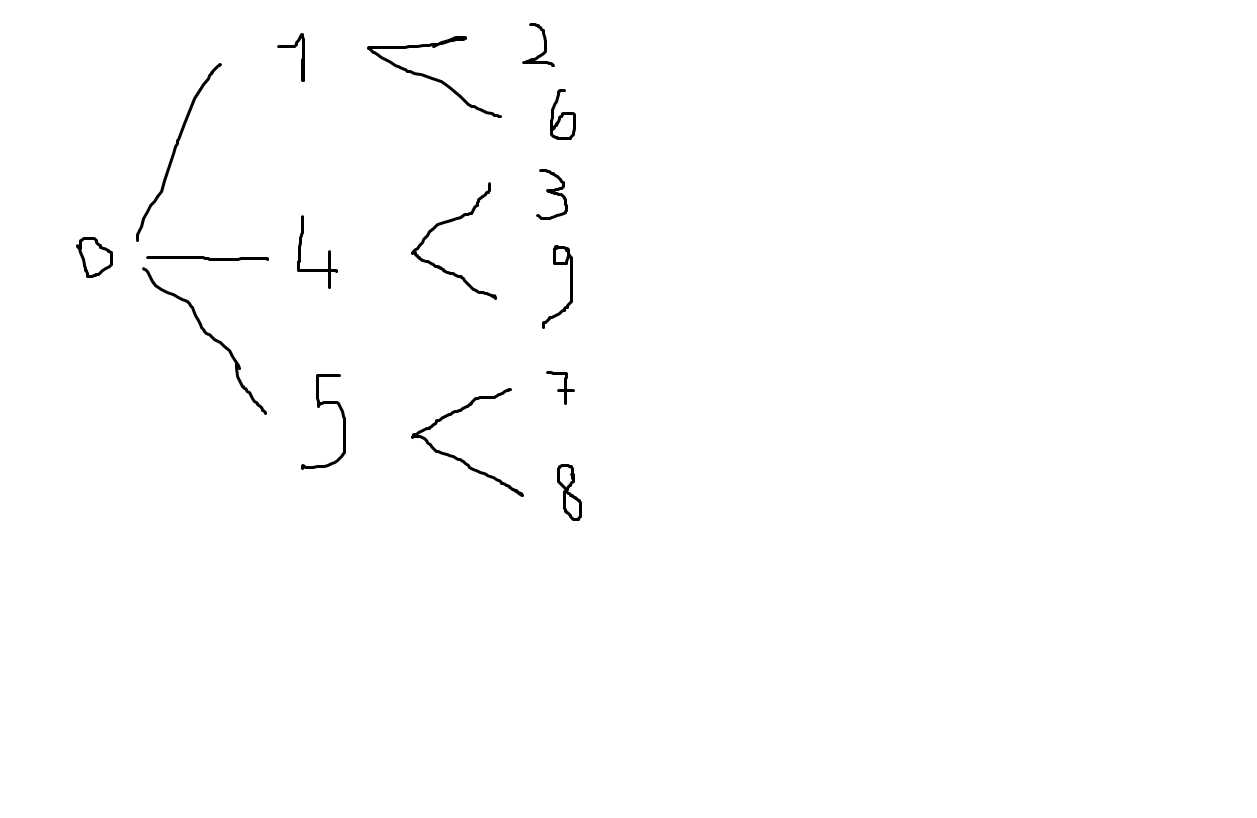 1 2
6
3
0 4 9
5 7
8